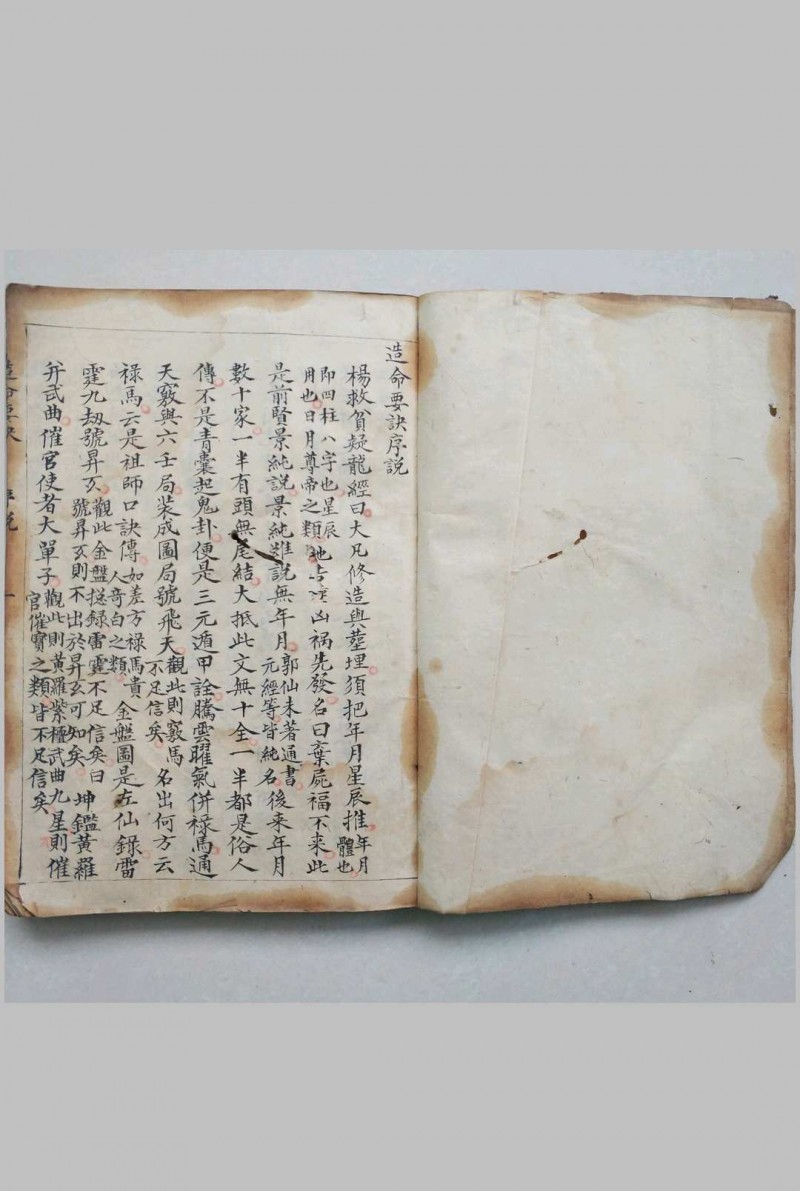 造命要訣序說
楊救貧疑龍經曰大凡修造與塟埋須把年月星辰推年月體也
即四柱八字也星辰用也日月尊帝之類地吉凶祸先發名曰棄屍福不来此
是前賢景純說景純雖說無年月郭仙未著通書元經等皆純名後来年月
數十家一半有頭無尾結大抵此文無十全一半都是俗人
傳不是青囊起鬼卦便是三元遁甲詮騰雲曜氣併禄馬通
天竅與六壬局装成圖局號飛天觀此則竅馬不足信矣名出何方云
禄馬云是祖師口訣傳如差方禄馬貴人奇白之類金盤圖是左仙錄雷
霆九劫號昇玄觀此金盤摇録雷霆不足信矣曰號昇玄則不出於昇玄可知矣坤鑑黃羅
弁武曲催官使者大單子觀此則黃羅紫檀武曲九星則催官催寶之類皆不足信矣